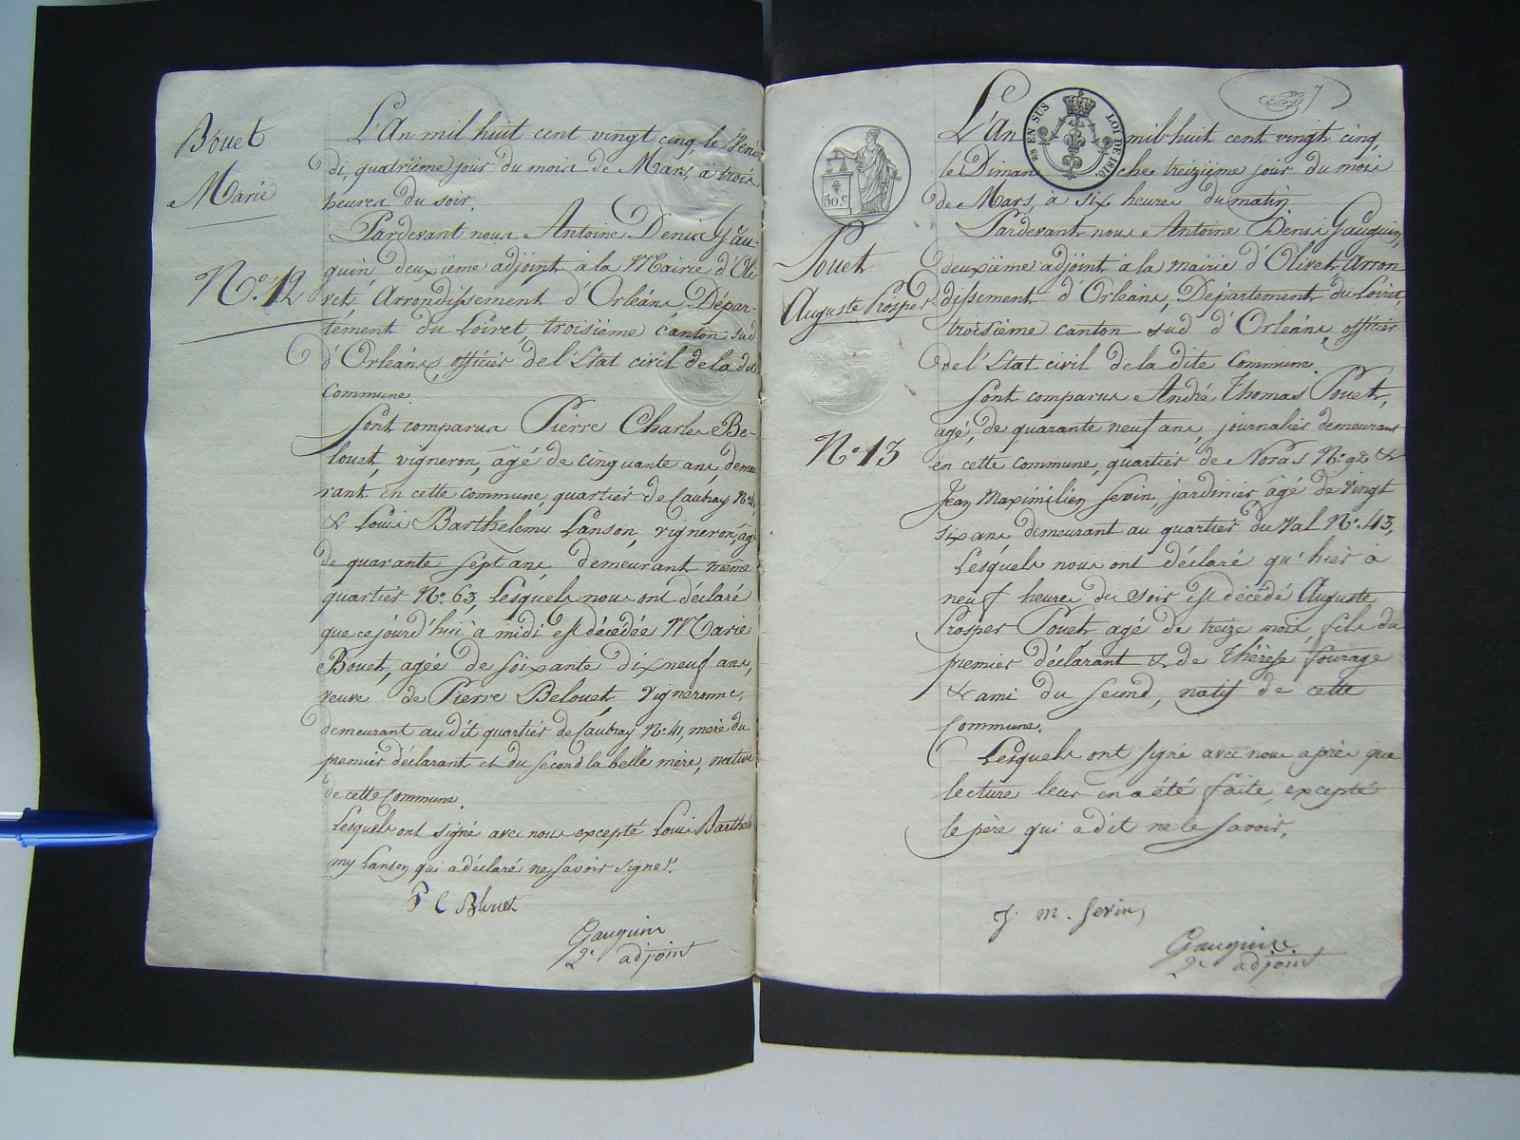 Bouet
Marie
N.º 12
L'An mil huit cent vingt cinq le Vendre
di, quatrième jour du mois de Mars à trois
heures du soir.
Pardevant nous Antoine Denis Gau-
guin deuxième adjoint à la Mairie d'Oli
vet, Arrondissement d'Orléans, Dépar-
tement du Loiret, troisième canton sud
d'Orléans, officier de l'Etat civil de la dte
Commune.
Sont comparus Pierre Charles Be-
louet, vigneron, âgé de cinquante ans, demeu
rant en cette commune, quartier de Caubray N.º 41,
& Louis Barthelemy Lanson, vigneron, âgé
de quarante sept ans demeurant même
quartier N.º 63, Lesquels nous ont déclaré
que ce jourd'hui à midi est décédée Marie
Bouet, agée de soixante dix neuf ans,
veuve de Pierre Belouet, vigneronne,
demeurant au dit quartier de Caubray N.º 41, mère du
premier déclarant et du second la belle mère, native
de cette Commune.
Lesquels ont signé avec nous excepté Louis Barthele
my Lanson qui a déclaré ne savoir signer.
P C Blouet
Gauguin
2e adjoint
EN SUS
LOI DE 1816
30 c
7
Pouet
Auguste Prosper
N.º 13
L'An mil huit cent vingt cinq,
le Dimanche treizième jour du mois
de Mars, à six heures du matin
Pardevant nous Antoine Denis Gauguin,
deuxième adjoint à la mairie d'Olivet, Arron
dissement d'Orléans, Département du Loiret,
troisième canton sud d'Orléans, officier
de l'Etat civil de la dite Commune.
Sont comparus André Thomas Pouet,
agé, de quarante neuf ans, journalier demeurant
en cette commune, quartier de Noras N.º 98 &
Jean Maximilien Sevin, jardinier, âgé de vingt
six ans demeurant au quartier du Val N.º 43,
Lesquels nous ont déclaré qu'hier à
neuf heures du soir est décédé Auguste
Prosper Pouet agé de treize mois, fils du
premier déclarant & de Thérèse Fourage
& ami du second, natif de cette
Commune.
Lesquels ont signé avec nous après que
lecture leur en a été faite, excepté
le père qui a dit ne le savoir.
J. M. Sevin
Gauguin.
2e adjoint